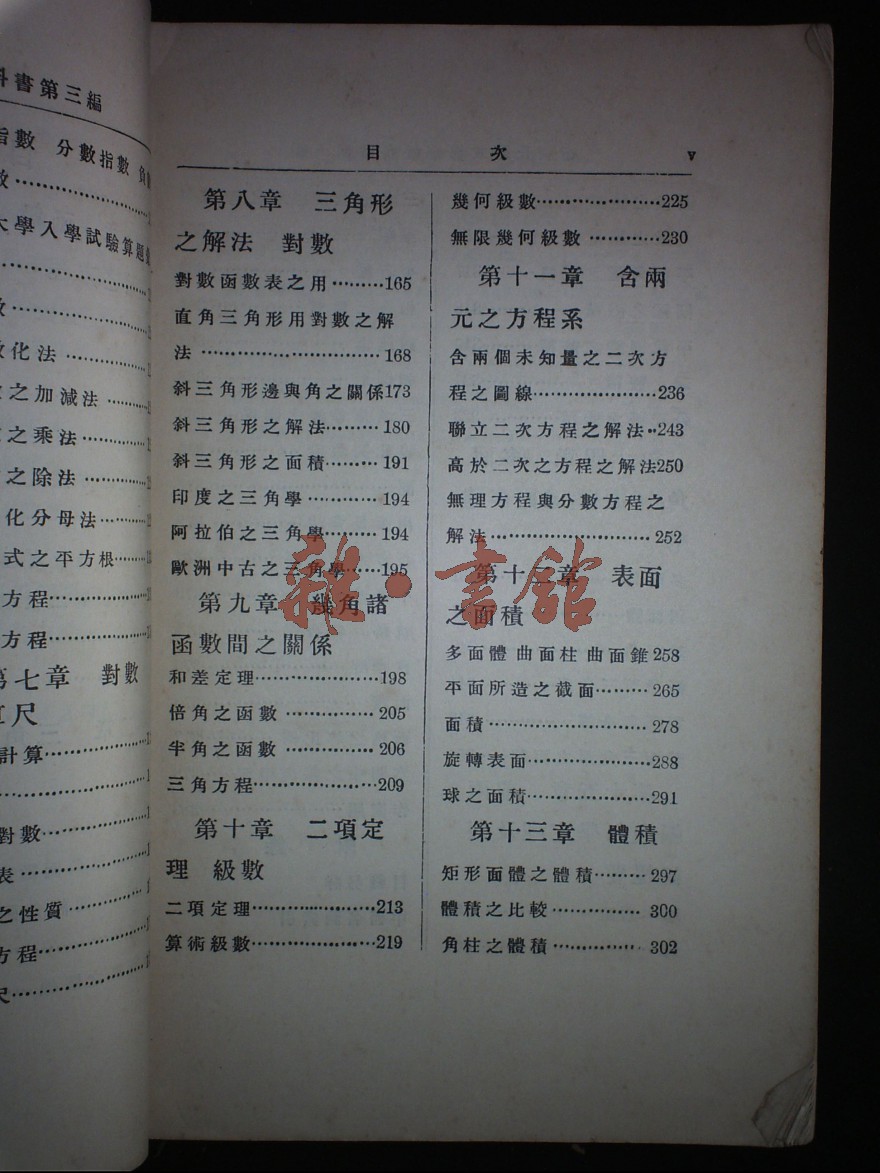 科書第三編
指數 分數指數 負
數
大學入學試驗算題
數
數化法
之加減法
之乘法
之除法
化分母法
式之平方根
方程
方程
第七章 對數
尺
計算
對數
表
之性質
方程
尺
目 次 v
第八章 三角形
之解法 對數
對數函數表之用………165
直角三角形用對數之解
法…………………………168
斜三角形邊與角之關係173
斜三角形之解法………180
斜三角形之面積………191
印度之三角學…………194
阿拉伯之三角學………194
歐洲中古之三角學……195
第九章 幾角諸
函數間之關係
和差定理…………………198
倍角之函數……………205
半角之函數……………206
三角方程…………………209
第十章 二項定
理 級數
二項定理…………………213
算術級數…………………219
幾何級數…………………225
無限幾何級數…………230
第十一章 含兩
元之方程系
含兩個未知量之二次方
程之圖線…………………236
聯立二次方程之解法··243
高於二次之方程之解法250
無理方程與分數方程之
解法………………………252
第十二章 表面
之面積
多面體 曲面柱 曲面錐258
平面所造之截面………265
面積………………………278
旋轉表面…………………288
球之面積…………………291
第十三章 體積
矩形面體之體積………297
體積之比較……………300
角柱之體積……………302
雜·書館